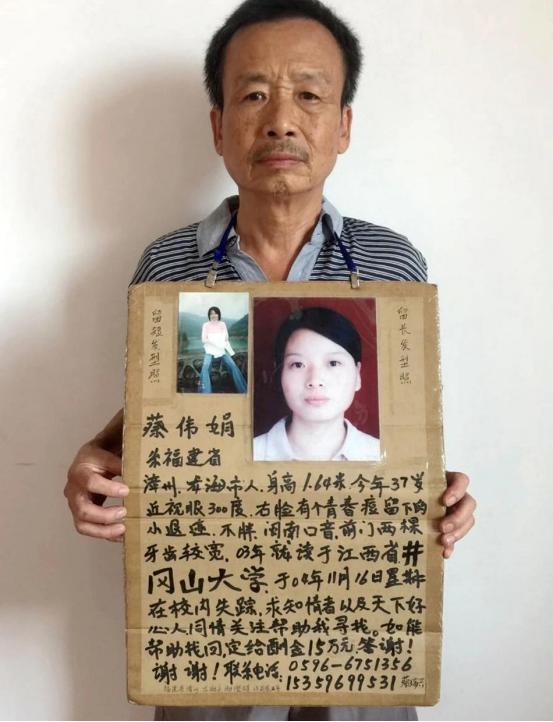 留短发型照
留长发型照
蔡伟娟
福建省
漳州.龙海市人.身高1.64米今年37岁
近视眼300度.右脸有个青春痘留下的
小退迹.不胖.闽南口音.前门两棵
牙齿较宽.03年就读于江西省井
冈山大学于04年11月16日
在校内失踪.求知情者以及天下好
心人同情关注帮助我寻找。如能
帮助找回,定给酬金15万元.答谢!
谢谢!联系电话:0596-6751356
15359699531